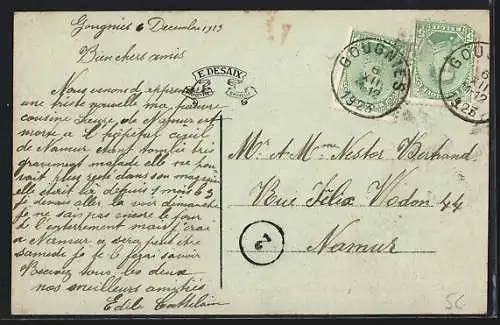 Gougnies 6 Decembre 1923
Bien chers amis
Nous venons d'apprendre
une triste nouvelle ma pauvre
cousine Laure de Namur est
morte a l'hopital civil
de Namur étant tombée très
gravement malade elle ne pou-
vait plus rester dans son magasin
elle était là depuis 1 mois
je devais aller la voir dimanche
je ne sais pas encore le jour
de l'enterrement mais j'irai
a Namur ce sera peut être
samedi je te le ferai savoir
Recevez tous les deux
nos meilleurs amitiés
E. DESAIX
GOUGNIES
6
XII
12
1923
GOU
6
XII
12
1923
Mr & Mme Nestor Bertrand
Rue Félix Wodon 44
Namur
5C